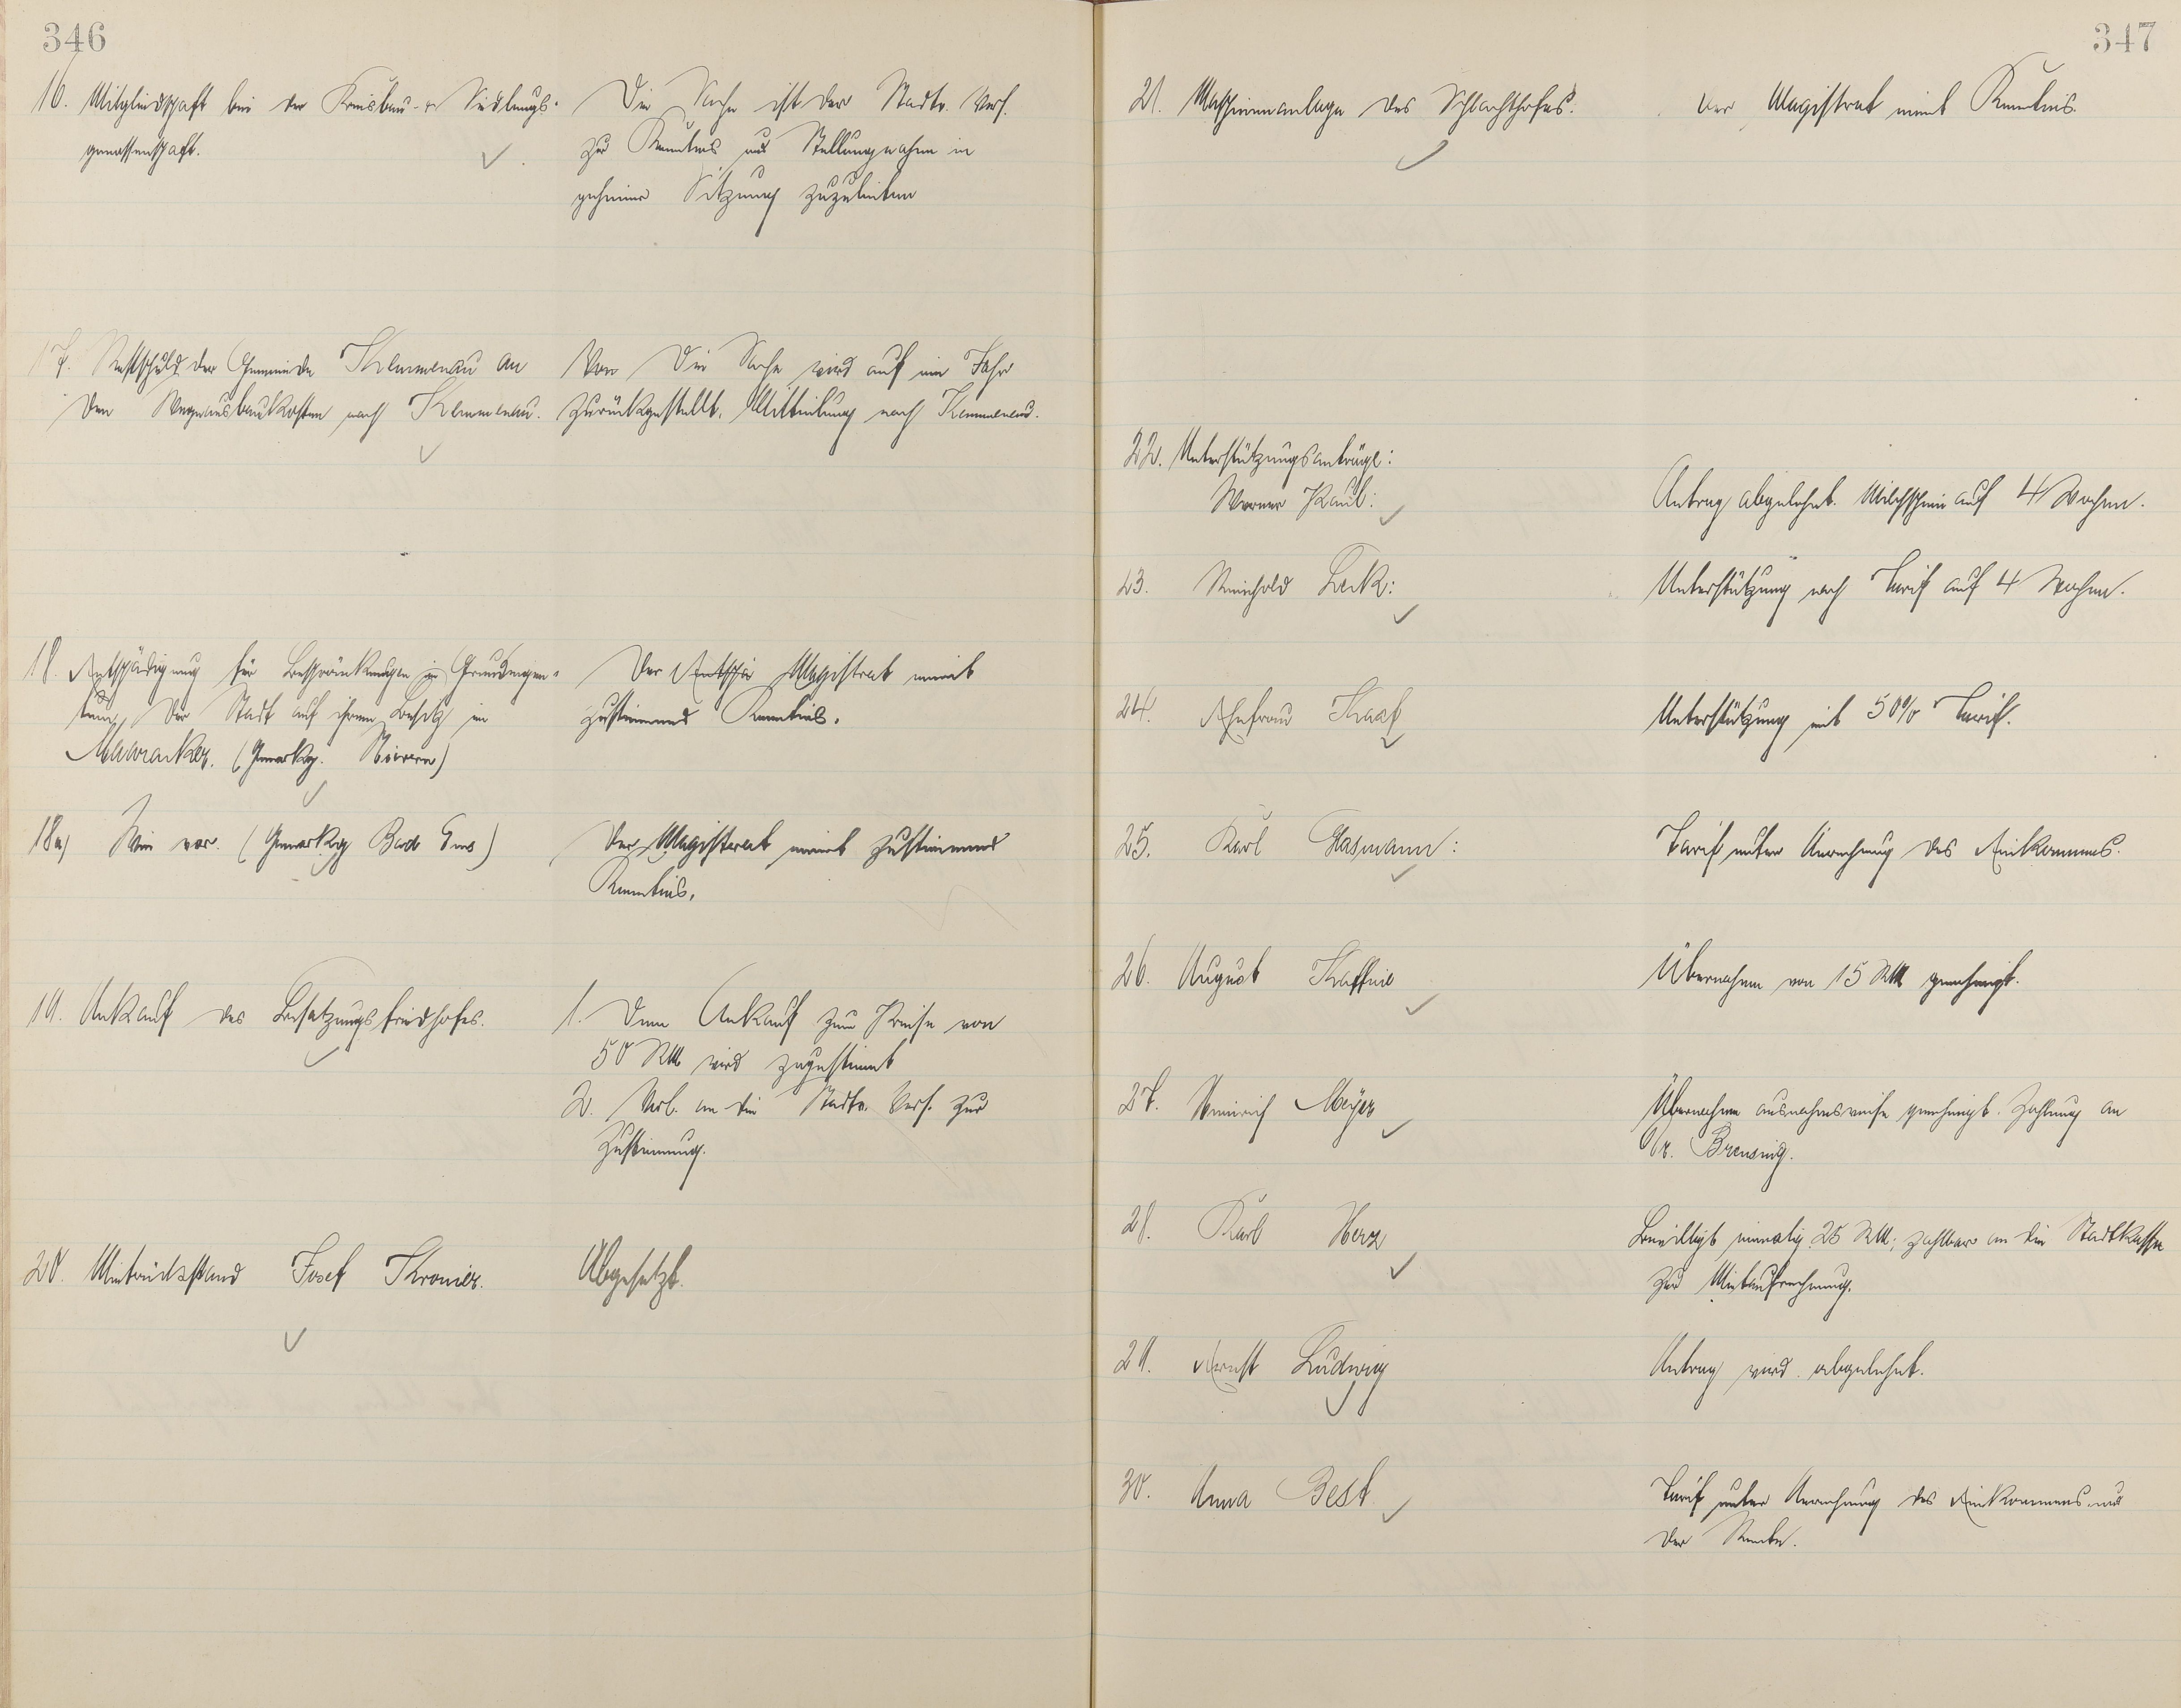 346
16. Mitgliedschaft bei der Kreisbau- & Siedlungs-
genossenschaft.
Die Sache ist der Stadtv. Vers.
zur Kenntnis und Stellungnahme in
geheimer Sitzung zuzuleiten
17. Restschuld der Gemeinde Kemmenau an
den Wegeausbaukosten nach Kemmenau.
Von Die Sache wird auf ein Jahr
zurückgestellt. Mitteilung nach Kemmenau.
18. Entschädigung für Beschränkungen im Grundeigen-
tum der Stadt auf ihrem Besitz im
(Gemarkg. Nievern)
Der Entschä Magistrat nimmt
zustimmend Kenntnis.
18a) Wie vor. (Gemarkg Bad Ems)
Der Magistrat nimmt zustimmend
Kenntnis.
19. Ankauf des Besatzungsfriedhofes.
1. Dem Ankauf zum Preise von
50 RM wird zugestimmt
2. Vorl. an die Stadtv. Vers. zur
Zustimmung.
20. Mietrückstand Josef
Abgesetzt.
347
21. Maschinenanlage des Schlachthofes.
Der Magistrat nimmt Kenntnis.
22. Unterstützungsanträge:
Werner Kaul:
Antrag abgelehnt. Milchschein auf 4 Wochen.
23. Reinhold Beck:
Unterstützung nach Tarif auf 4 Wochen.
24. Ehefrau
Unterstützung mit 50% Tarif.
25. Karl Gasmann:
Tarif unter Anrechnung des Einkommens.
26. August
Übernahme von 15 RM genehmigt.
27. Heinrich Meÿer
Übernahme ausnahmsweise genehmigt. Zahlung an
Dr. Brensing.
28. Karl Herz
Bewilligt einmalig 25 RM; zahlbar an die Stadtkasse
zur Mietaufrechnung.
29. Ernst Ludwig
Antrag wird abgelehnt.
30. Anna Best
Tarif unter Anrechnung des Einkommens und
der Rente.